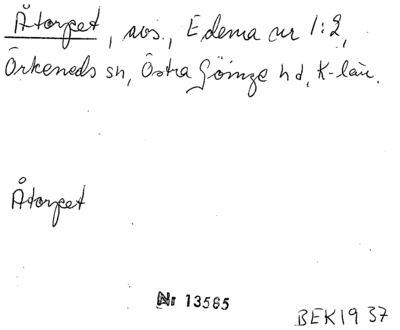 Åtorpet, avs., Edema nr 1:2,
Örkeneds sn, Östra Göinge hd, K-län.
Åtorpet
Nr 13585
BEK19 37